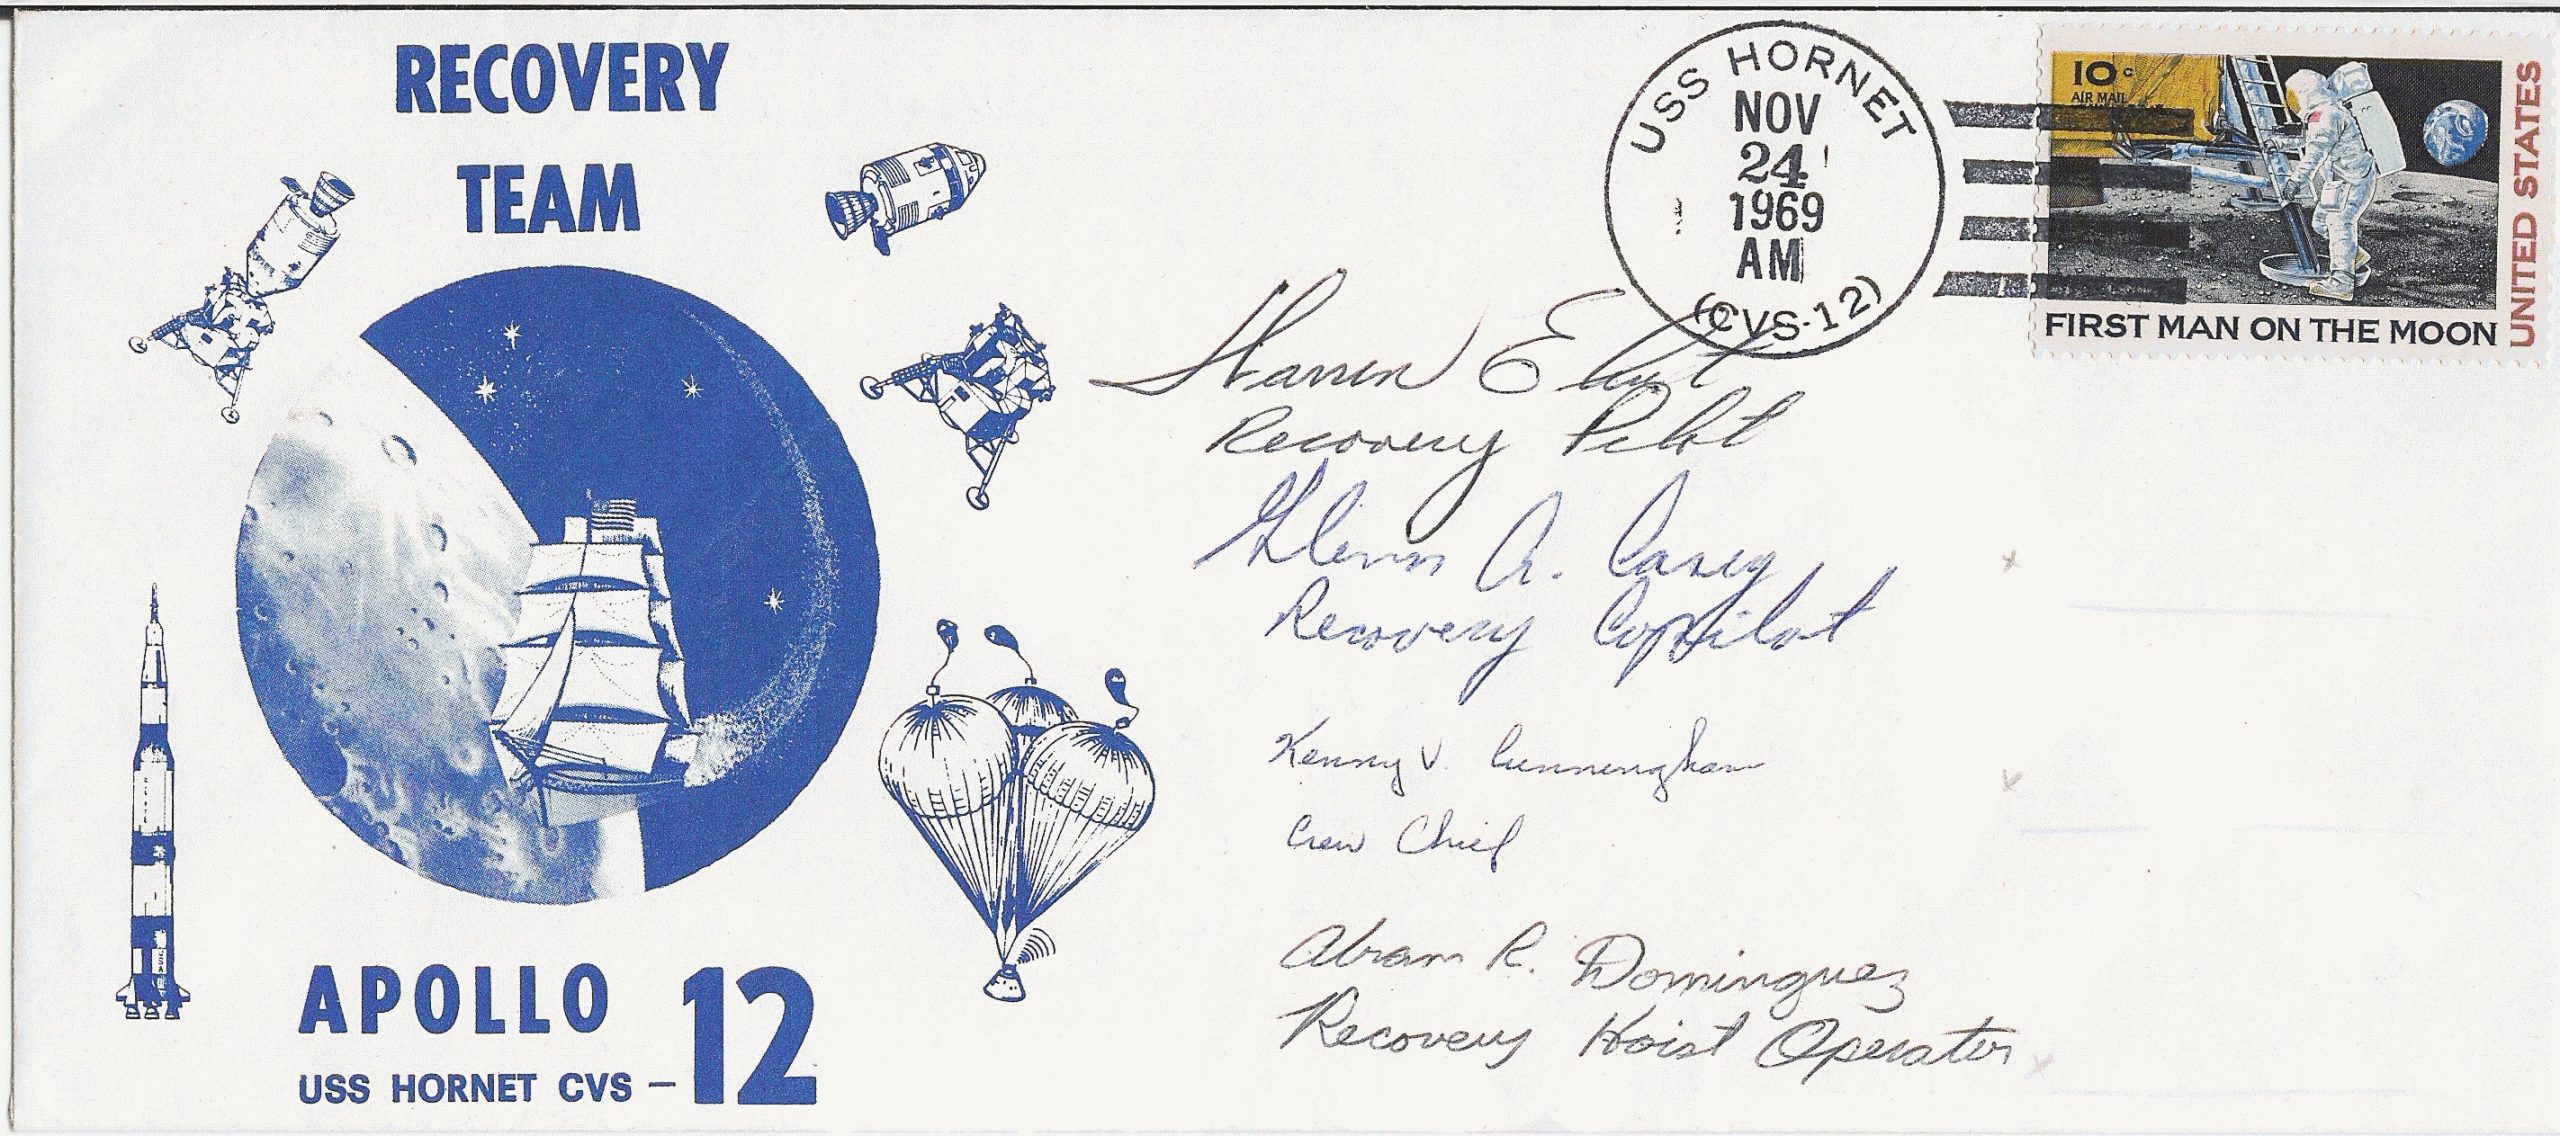 RECOVERY
TEAM
APOLLO 12
USS HORNET CVS –
USS HORNET
NOV
24
1969
AM
(CVS-12)
10c
AIR MAIL
UNITED STATES
FIRST MAN ON THE MOON
Warren E
Recovery Pilot
Glenn A. Casey
Recovery Copilot
Kenny V. Cunningham
Crew Chief
Abram R. Dominguez
Recovery Hoist Operator
USA